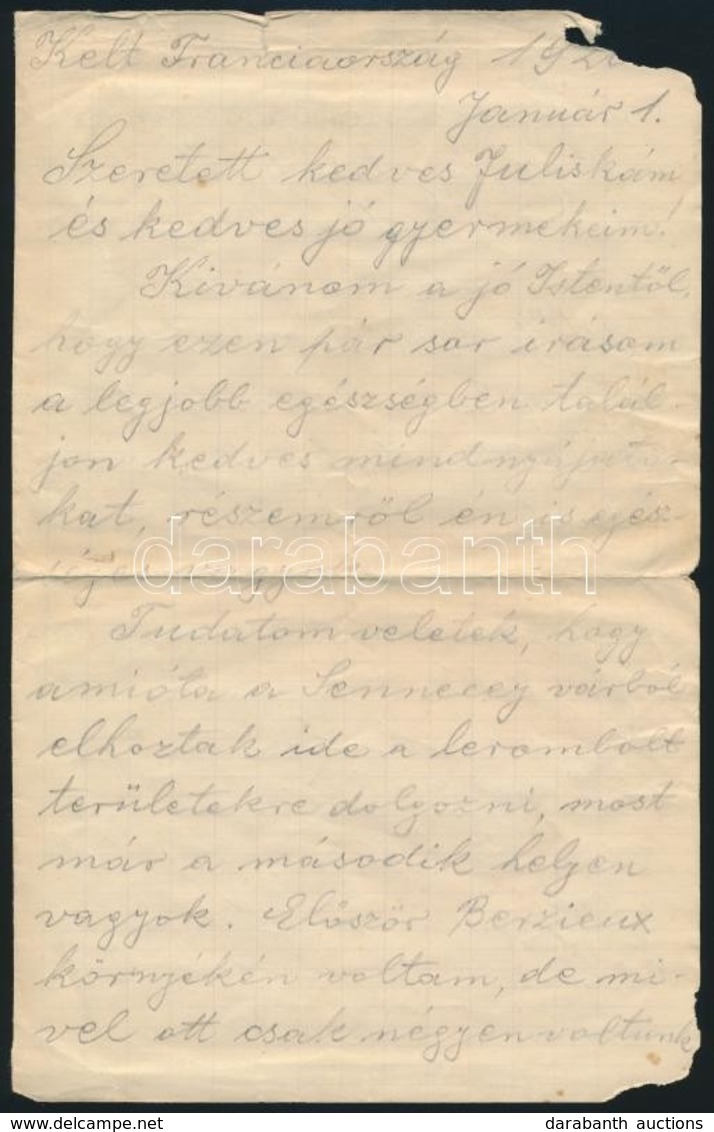 Kelt Franciaország 192
Január 1.
Szeretett kedves Juliskám
és kedves jó gyermekeim!
Kivánom a jó Istentől,
hogy ezen pár sor irásom
a legjobb egészségben talál-
jon kedves mindnyájato-
kat, részemről én is egész-
séges vagyok.
darabanth
Tudatom veletek, hogy
amióta a Sennecey várból
elhoztak ide a lerombolt
területekre dolgozni, most
már a második helyen
vagyok. Először Berzieux
környékén voltam, de mi-
vel ott csak négyen voltunk
www.darabanth.com
darabanth auctions